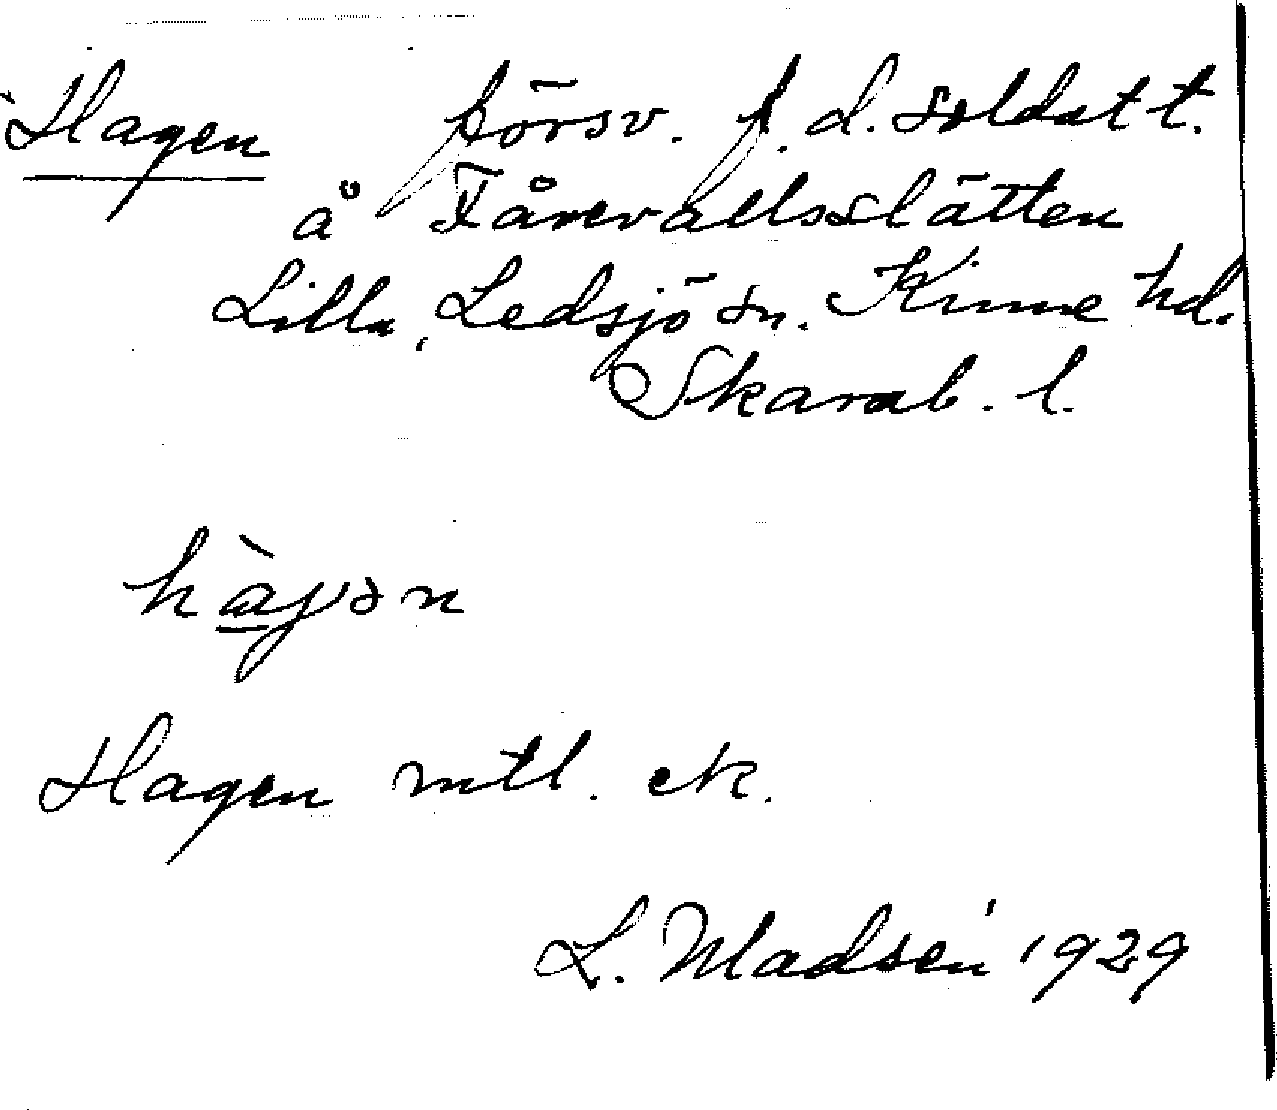 Hagen försv. f. d. soldatt.
å Fårevallsslätten
Lilla, Ledsjö sn. Kinne hd.
Skarab. l.
hàgɘn
Hagen mtl. ek.
L. Madsén 1929